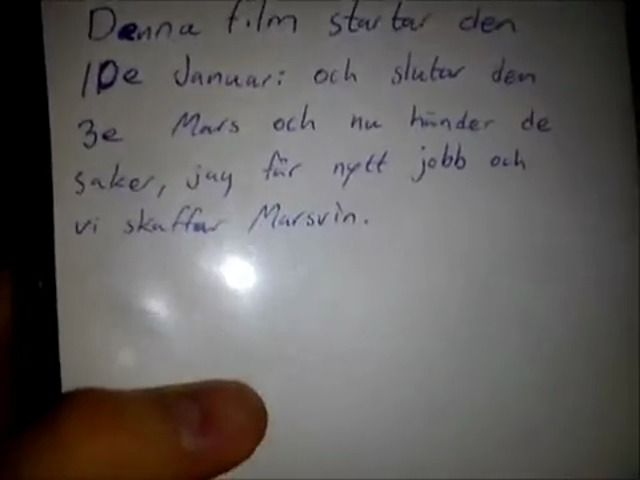 Denna film startar den
10e Januari och slutar den
3e Mars och nu händer de
saker, jag får nytt jobb och
vi skaffar Marsvin.